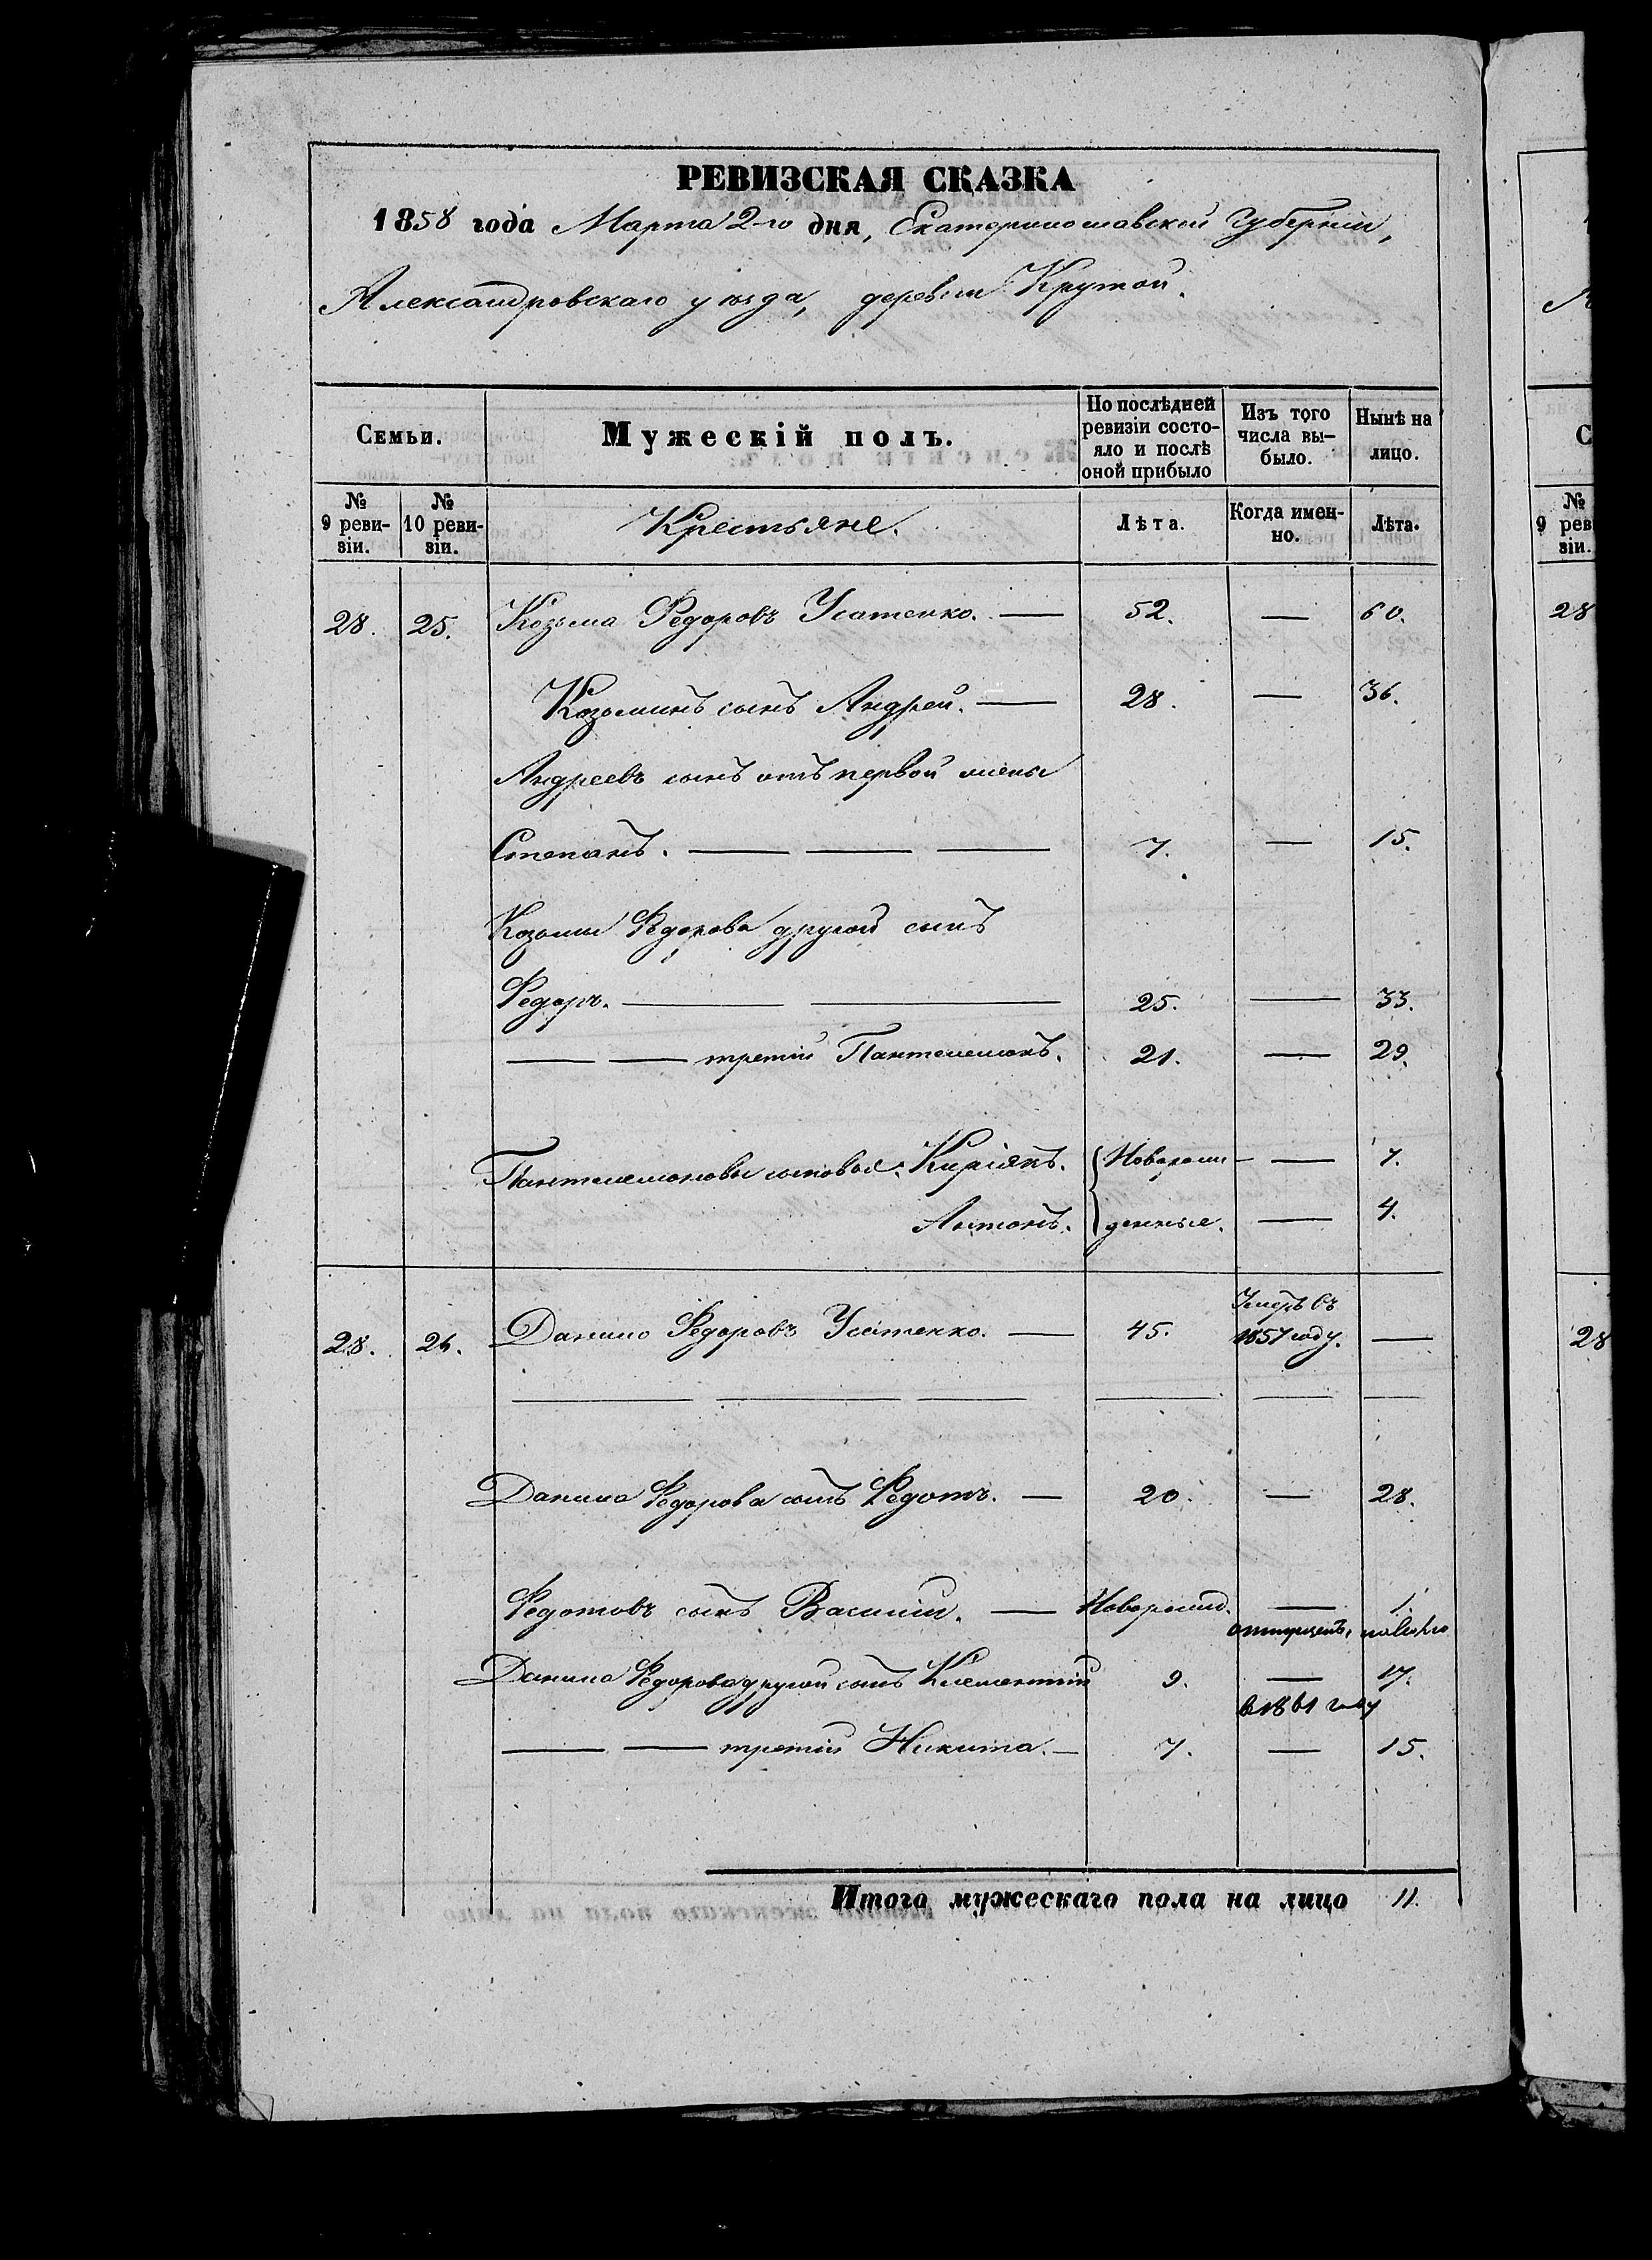 РЕВИЗСКАЯ СКАЗКА
1858 года Марта 2-го дня, Екатеринославской Губерніи,
Александровскаго уѣзда, деревни Крутой.
Семьи. Мужескій полъ. По послѣдней ревизіи состояло и послѣ оной прибыло Изъ того числа выбыло. Нынѣ на лицо.
№ 9 ревизіи. № 10 ревизіи. Крестьяне. Лѣта. Когда именно. Лѣта.
28. 25. Козьма Федоровъ Усатенко. — 52. — 60.
Козьминъ сынъ Андрей. — 28. — 36.
Андреевъ сынъ отъ первой жены
Степанъ. — — — 7. — 15.
Козьмы Федорова другой сынъ
Федоръ. — — 25. — 33.
— — третій Пантелемонъ. 21. — 29.
Пантелемоновы сыновья: Киріякъ. Новорож- — 7.
Антонъ. денные. — 4.
Умеръ въ
28. 26. Данило Федоровъ Усатенко. — 45. 1857 году. —
— — — — — —
Данила Федорова сынъ Федотъ. — 20. — 28.
Федотовъ сынъ Василій. — Новорожд. — 1.
отпущенъ
Данила Федорова другой сынъ Клементій 9. — 17.
в 1861 году
— — третій Никита. — 7. — 15.
Итого мужескаго пола на лицо 11.
С
№
9 рев
зіи.
28
28